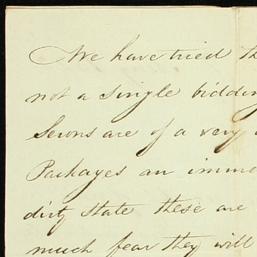 We have tried th
not a single bidding
Serons are of a very
Packages an imme
dirty state these are
much fear they will